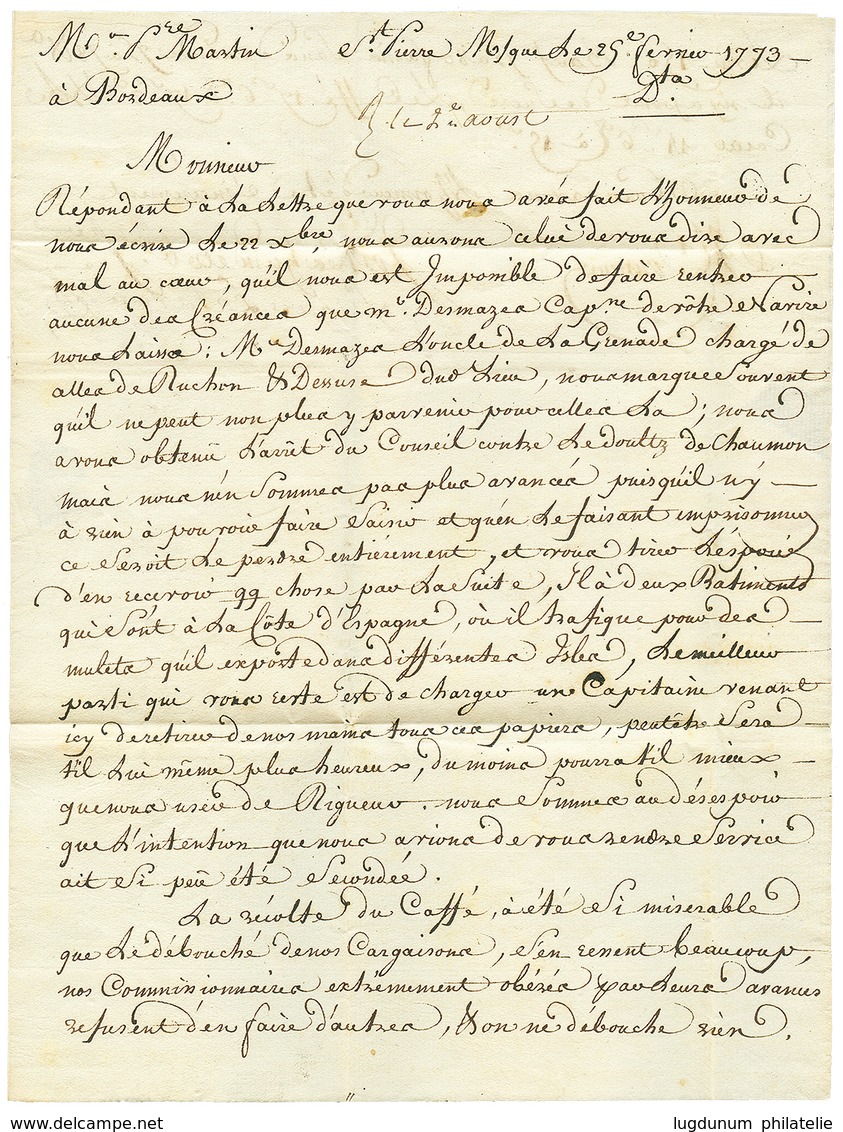 Mr. Pre Martin St. Pierre Mque Le 25e fevrier 1773
à Bordeaux Dta
R le 2e aoust
Monsieur
Répondant à La Lettre que vous nous avés fait L'honneur de
nous écrire Le 22 Xbre, nous aurons celui de vous dire avec
mal au cœur, qu'il nous est Impossible de faire rentrer
aucune des Créances que mr. Desmazes Capne de vôtre Navire
nous Laissa; Mr Desmazes L'oncle de La Grenade chargé de
celles de Ruchon & Dessuse dud. Lieu, nous marque Souvent
qu'il ne peut non plus y parvenir pour celles La; nous
avons obtenü L'arrêt du Conseil contre Le doultz de Chaumon
mais nous n'en Sommes pas plus avancés puisqu'il n'y
à rien à pouvoir faire Saisir et qu'en Le faisant emprisonner
ce Seroit Le perdre entiérement, et vous tirer L'éspoir
d'en recevoir qq chose par La Suite, Il à deux Batiments
qui Sont à La Côte d'Espagne, où il trafique pour des
mulets qu'il exporte dans différentes Isles, Le meilleur
parti qui vous reste est de charger un Capitaine venant
icy de retirer de nos mains tous ces papiers, peutêtre Sera
t'il Lui même plus heureux, du moins pourra t'il mieux
que nous user de Rigueur. nous Sommes au désespoir
que L'intention que nous avions de vous rendre Service
ait Si peü été Secondée.
La récolte du Caffé, à été Si miserable
que Le débouché de nos Cargaisons, S'en ressent beaucoup,
nos Commissionnaires extrémement obérés par Leurs avances
refusent d'en faire d'autres, & on ne débouche rien.
www.delcampe.net lugdunum philatelie